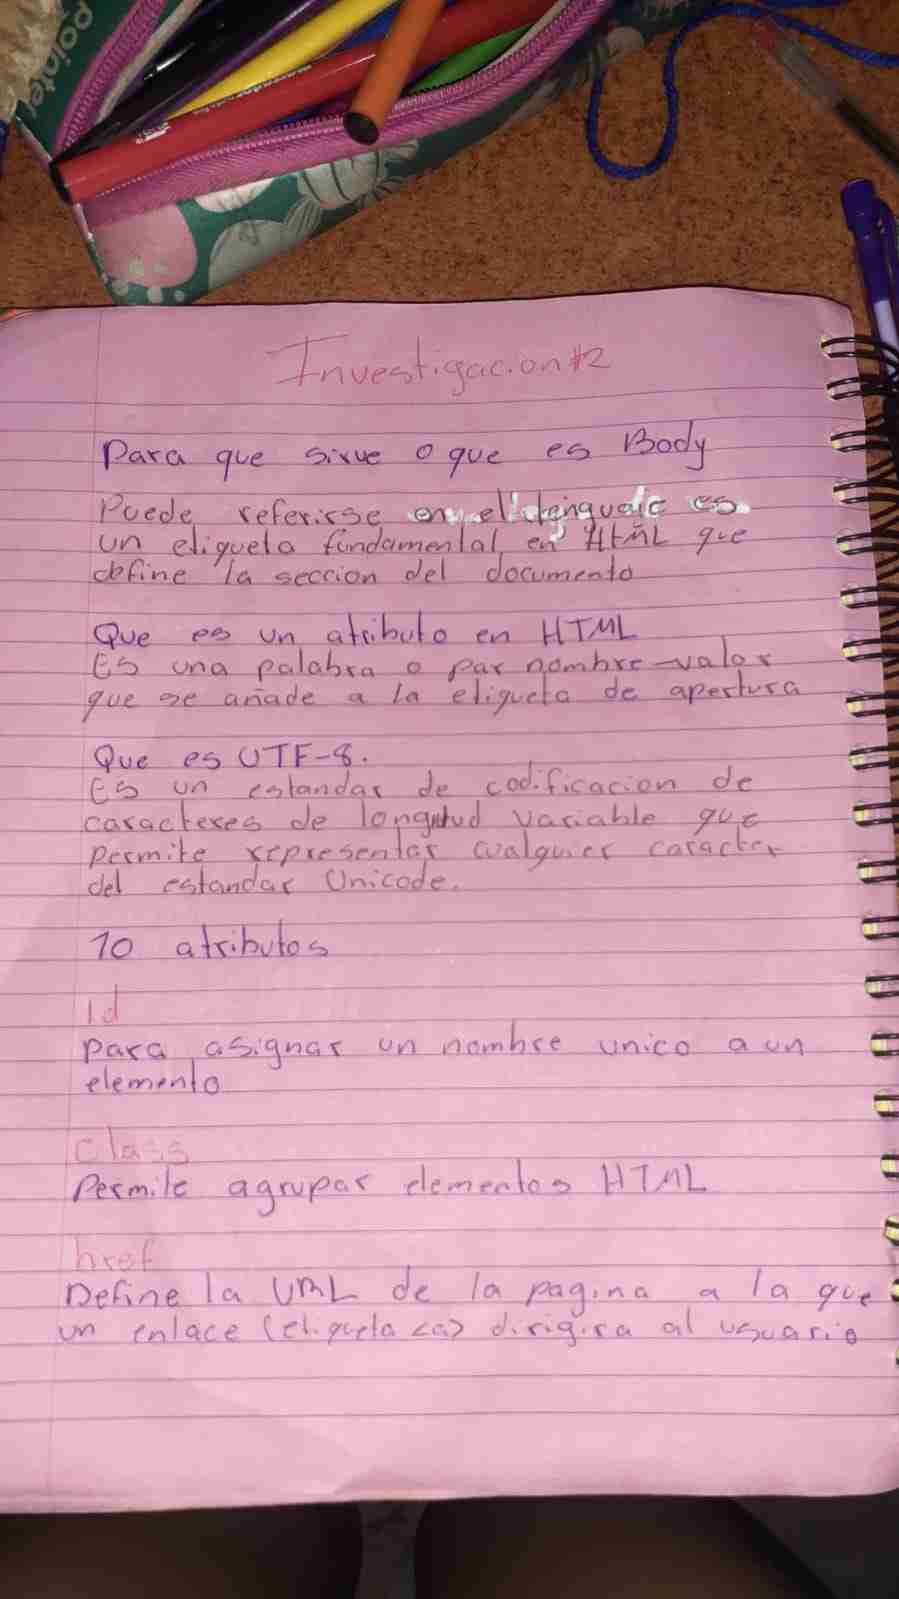 Pointer
Investigacion #2
Para que sirve o que es Body
Puede referirse en el lenguaje es
un etiqueta fundamental en HTML que
define la seccion del documento
Que es un atributo en HTML
Es una palabra o par nombre-valor
que se añade a la etiqueta de apertura
Que es UTF-8.
Es un estandar de codificacion de
caracteres de longitud variable que
permite representar cualquier caracter
del estandar Unicode.
10 atributos
id
para asignar un nombre unico a un
elemento
class
Permite agrupar elementos HTML
href
Define la URL de la pagina a la que
un enlace (etiqueta <a>) dirigira al usuario